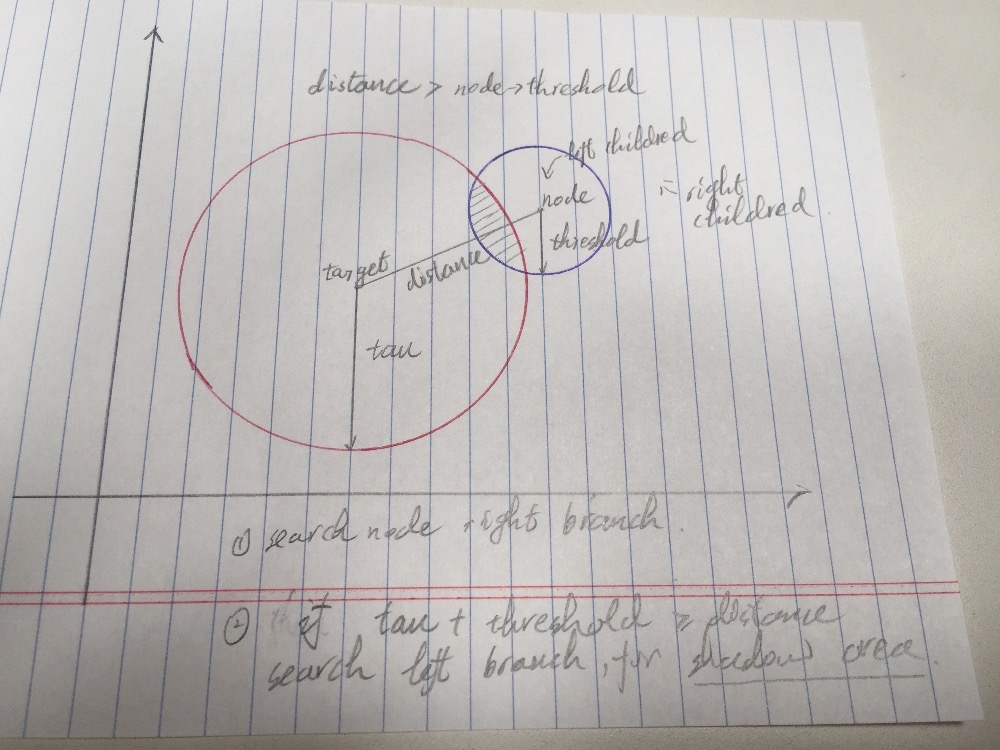 distance > node->threshold
left childred
node
right
childred
threshold
target
distance
tau
① search node right branch.
② if tau + threshold ≥ distance
search left branch, for shadow area.